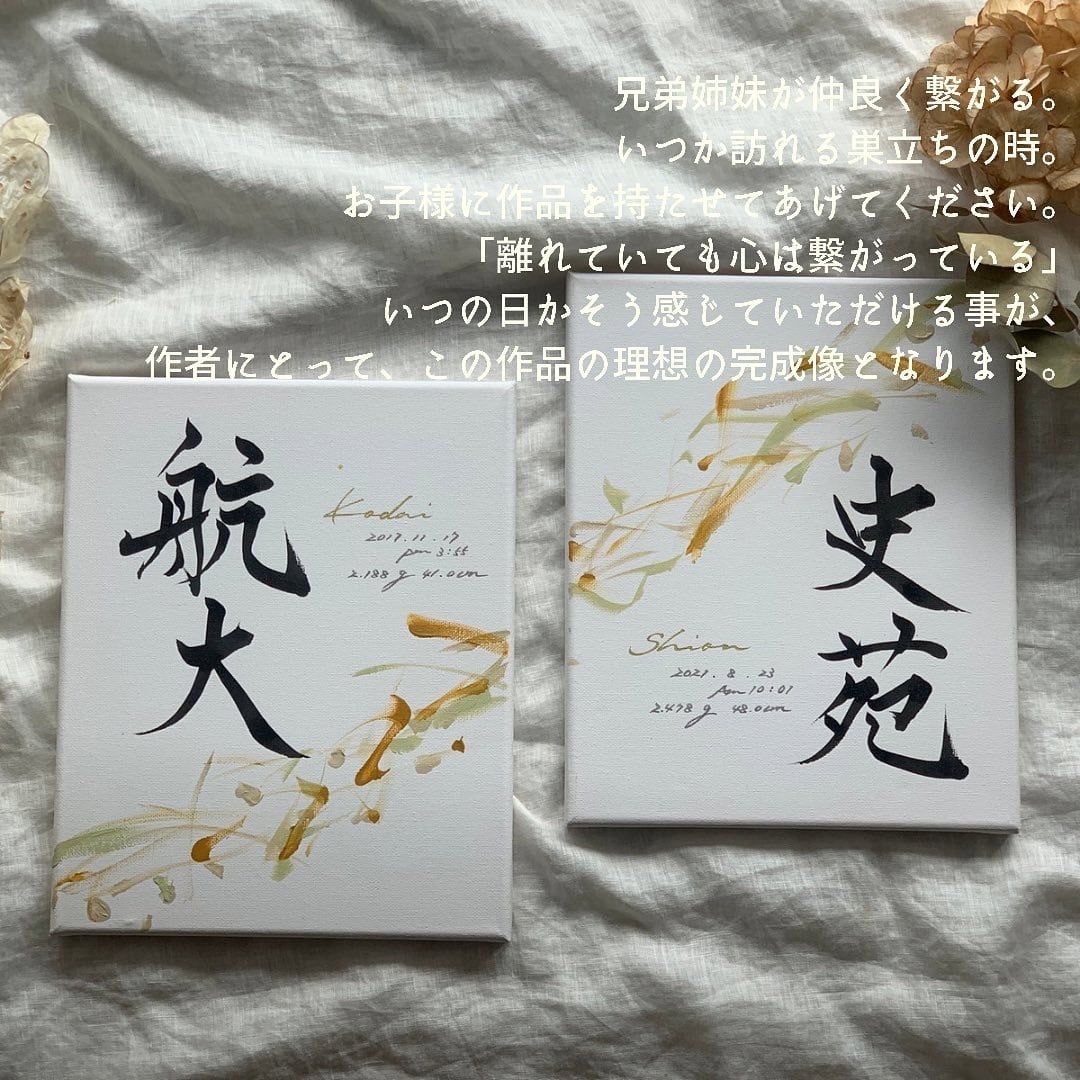 兄弟姉妹が仲良く繋がる。
いつか訪れる巣立ちの時。
お子様に作品を持たせてあげてください。
「離れていても心は繋がっている」
いつの日かそう感じていただける事が、
作者にとって、この作品の理想の完成像となります。
航大
Kodai
2017.11.17
pm 3:55
2.188g 41.0cm
史苑
Shion
2021.8.23
pm 10:01
2.478g 48.0cm